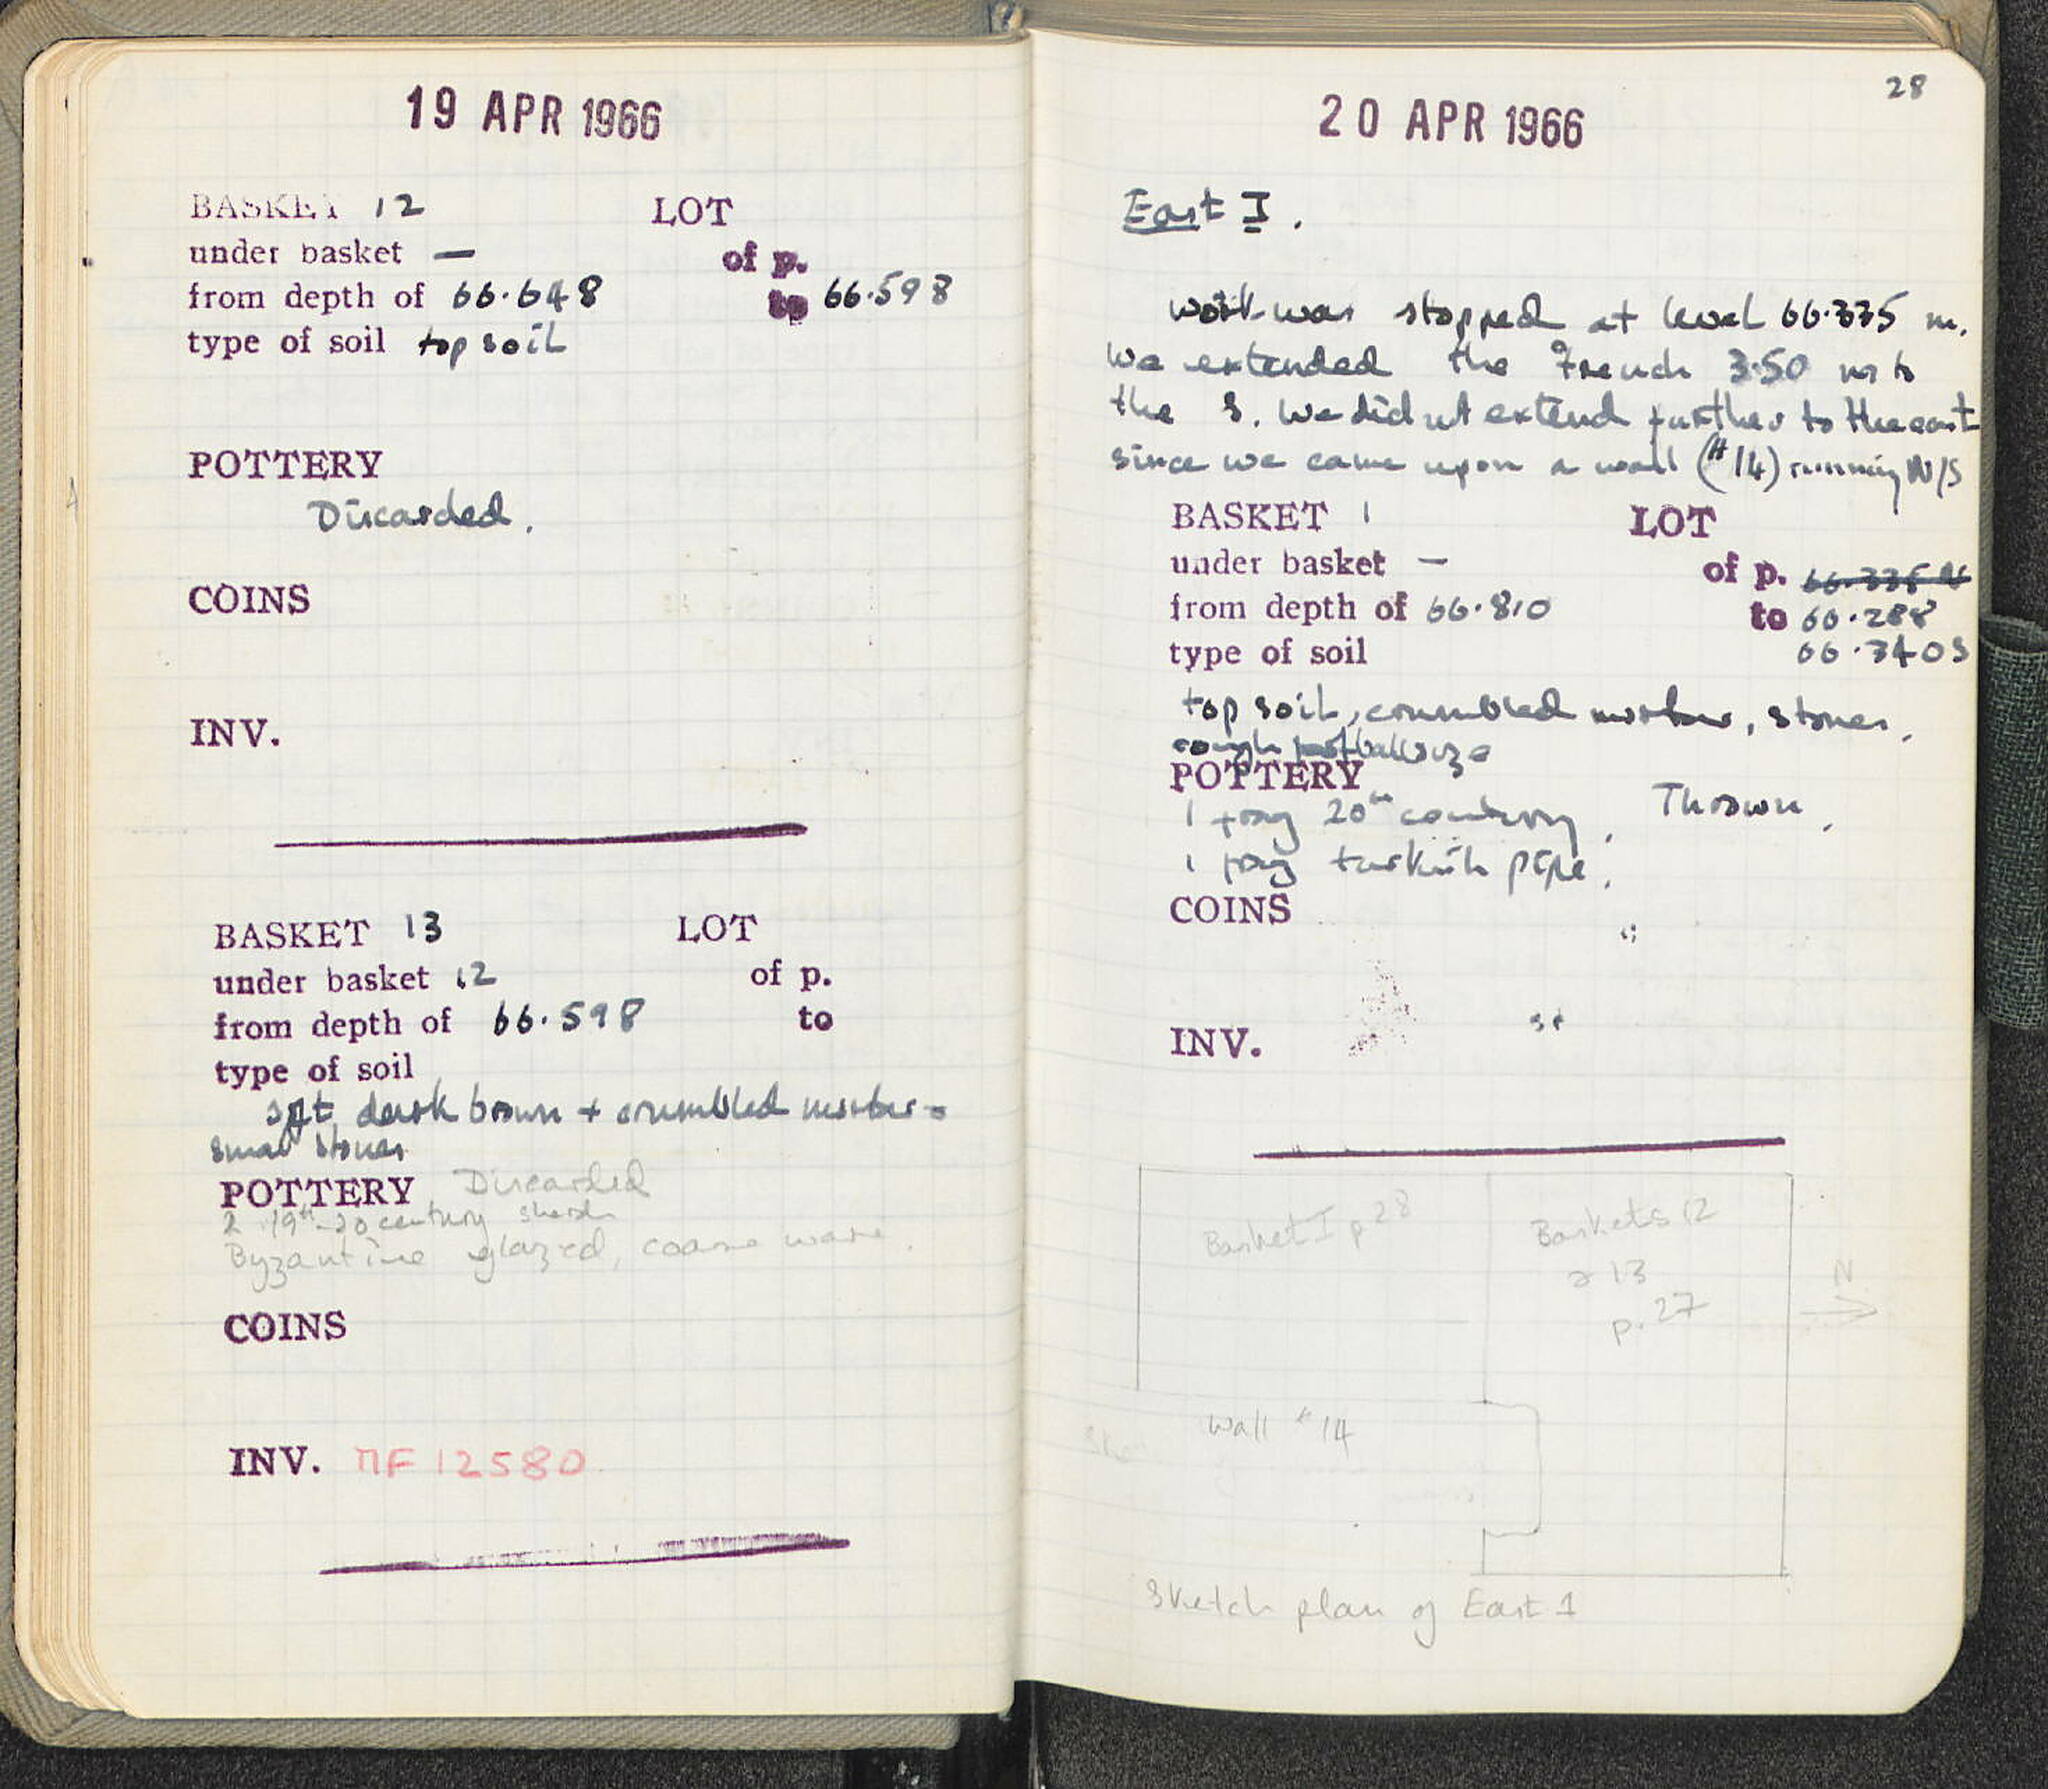 19 APR 1966
BASKET 12 LOT
under basket — of p.
from depth of 66.648 to 66.598
type of soil top soil
POTTERY
Discarded.
COINS
INV.
BASKET 13 LOT
under basket 12 of p.
from depth of 66.598 to
type of soil
soft dark brown + crumbled mortar =
small stones
POTTERY Discarded
2 19th-20 century sherds
Byzantine glazed, coarse ware.
COINS
INV. MF 12580
28
20 APR 1966
East I.
Work was stopped at level 66.335 m.
We extended the trench 3.50 m to
the S. We did not extend further to the east
since we came upon a wall (#14) running N/S
BASKET 1 LOT
under basket — of p. 66.335 N
from depth of 66.810 to 66.288
type of soil 66.340 S
top soil, crumbled mortar, stones,
rough football size
POTTERY
1 frag 20th century, Thrown.
1 frag turkish pipe.
COINS
INV.
Basket I p 28
Baskets 12
& 13
p. 27
N
Wall #14
Sketch plan of East 1